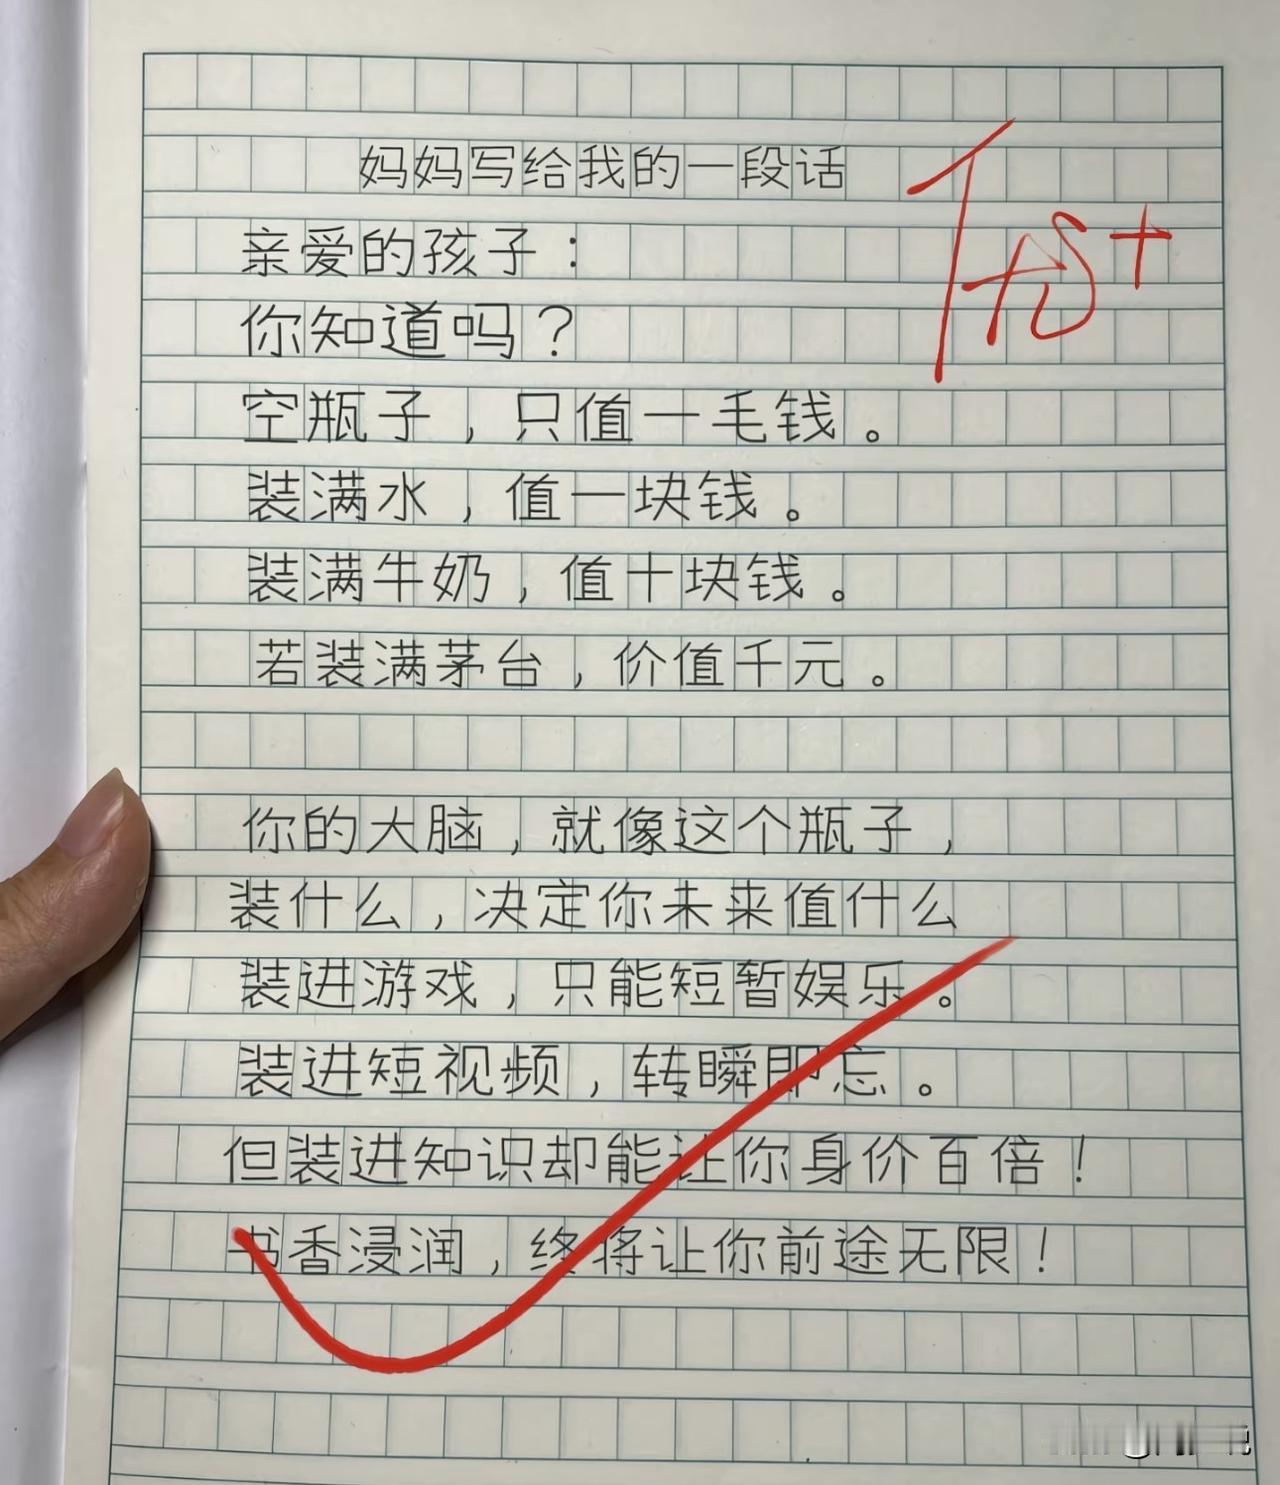 妈妈写给我的一段话
优+
亲爱的孩子：
你知道吗？
空瓶子，只值一毛钱。
装满水，值一块钱。
装满牛奶，值十块钱。
若装满茅台，价值千元。
你的大脑，就像这个瓶子，
装什么，决定你未来值什么
装进游戏，只能短暂娱乐。
装进短视频，转瞬即忘。
但装进知识却能让你身价百倍！
书香浸润，终将让你前途无限！